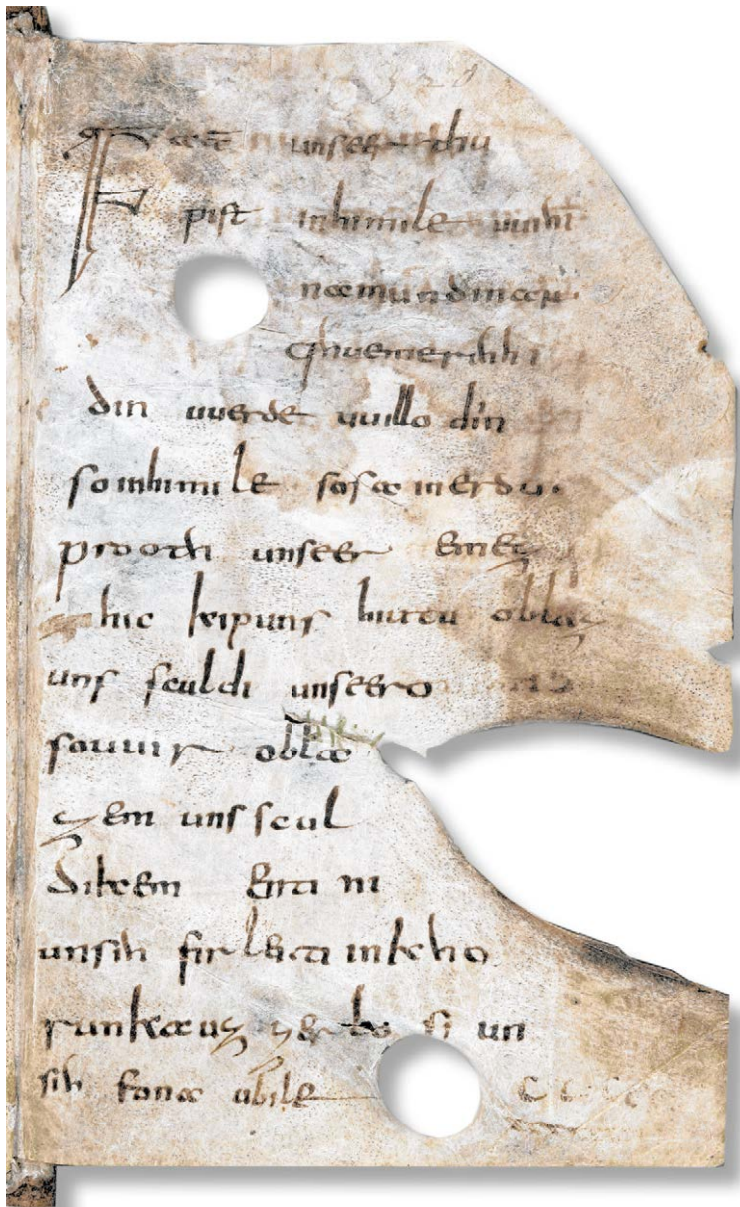 320
Fat̄ unseer thu
pist in himile uuihi
namun dinan
qhueme rihhi
din uuerde uuillo diin
so in himile sosa in erdu.
prooth unseer emez
zihic kip uns hiutu oblaz
uns sculdi unseero
so uuir obla
zem uns scul
dikem enti ni
unsih firleiti in kho
runka uz zer losi un
sih fona ubile